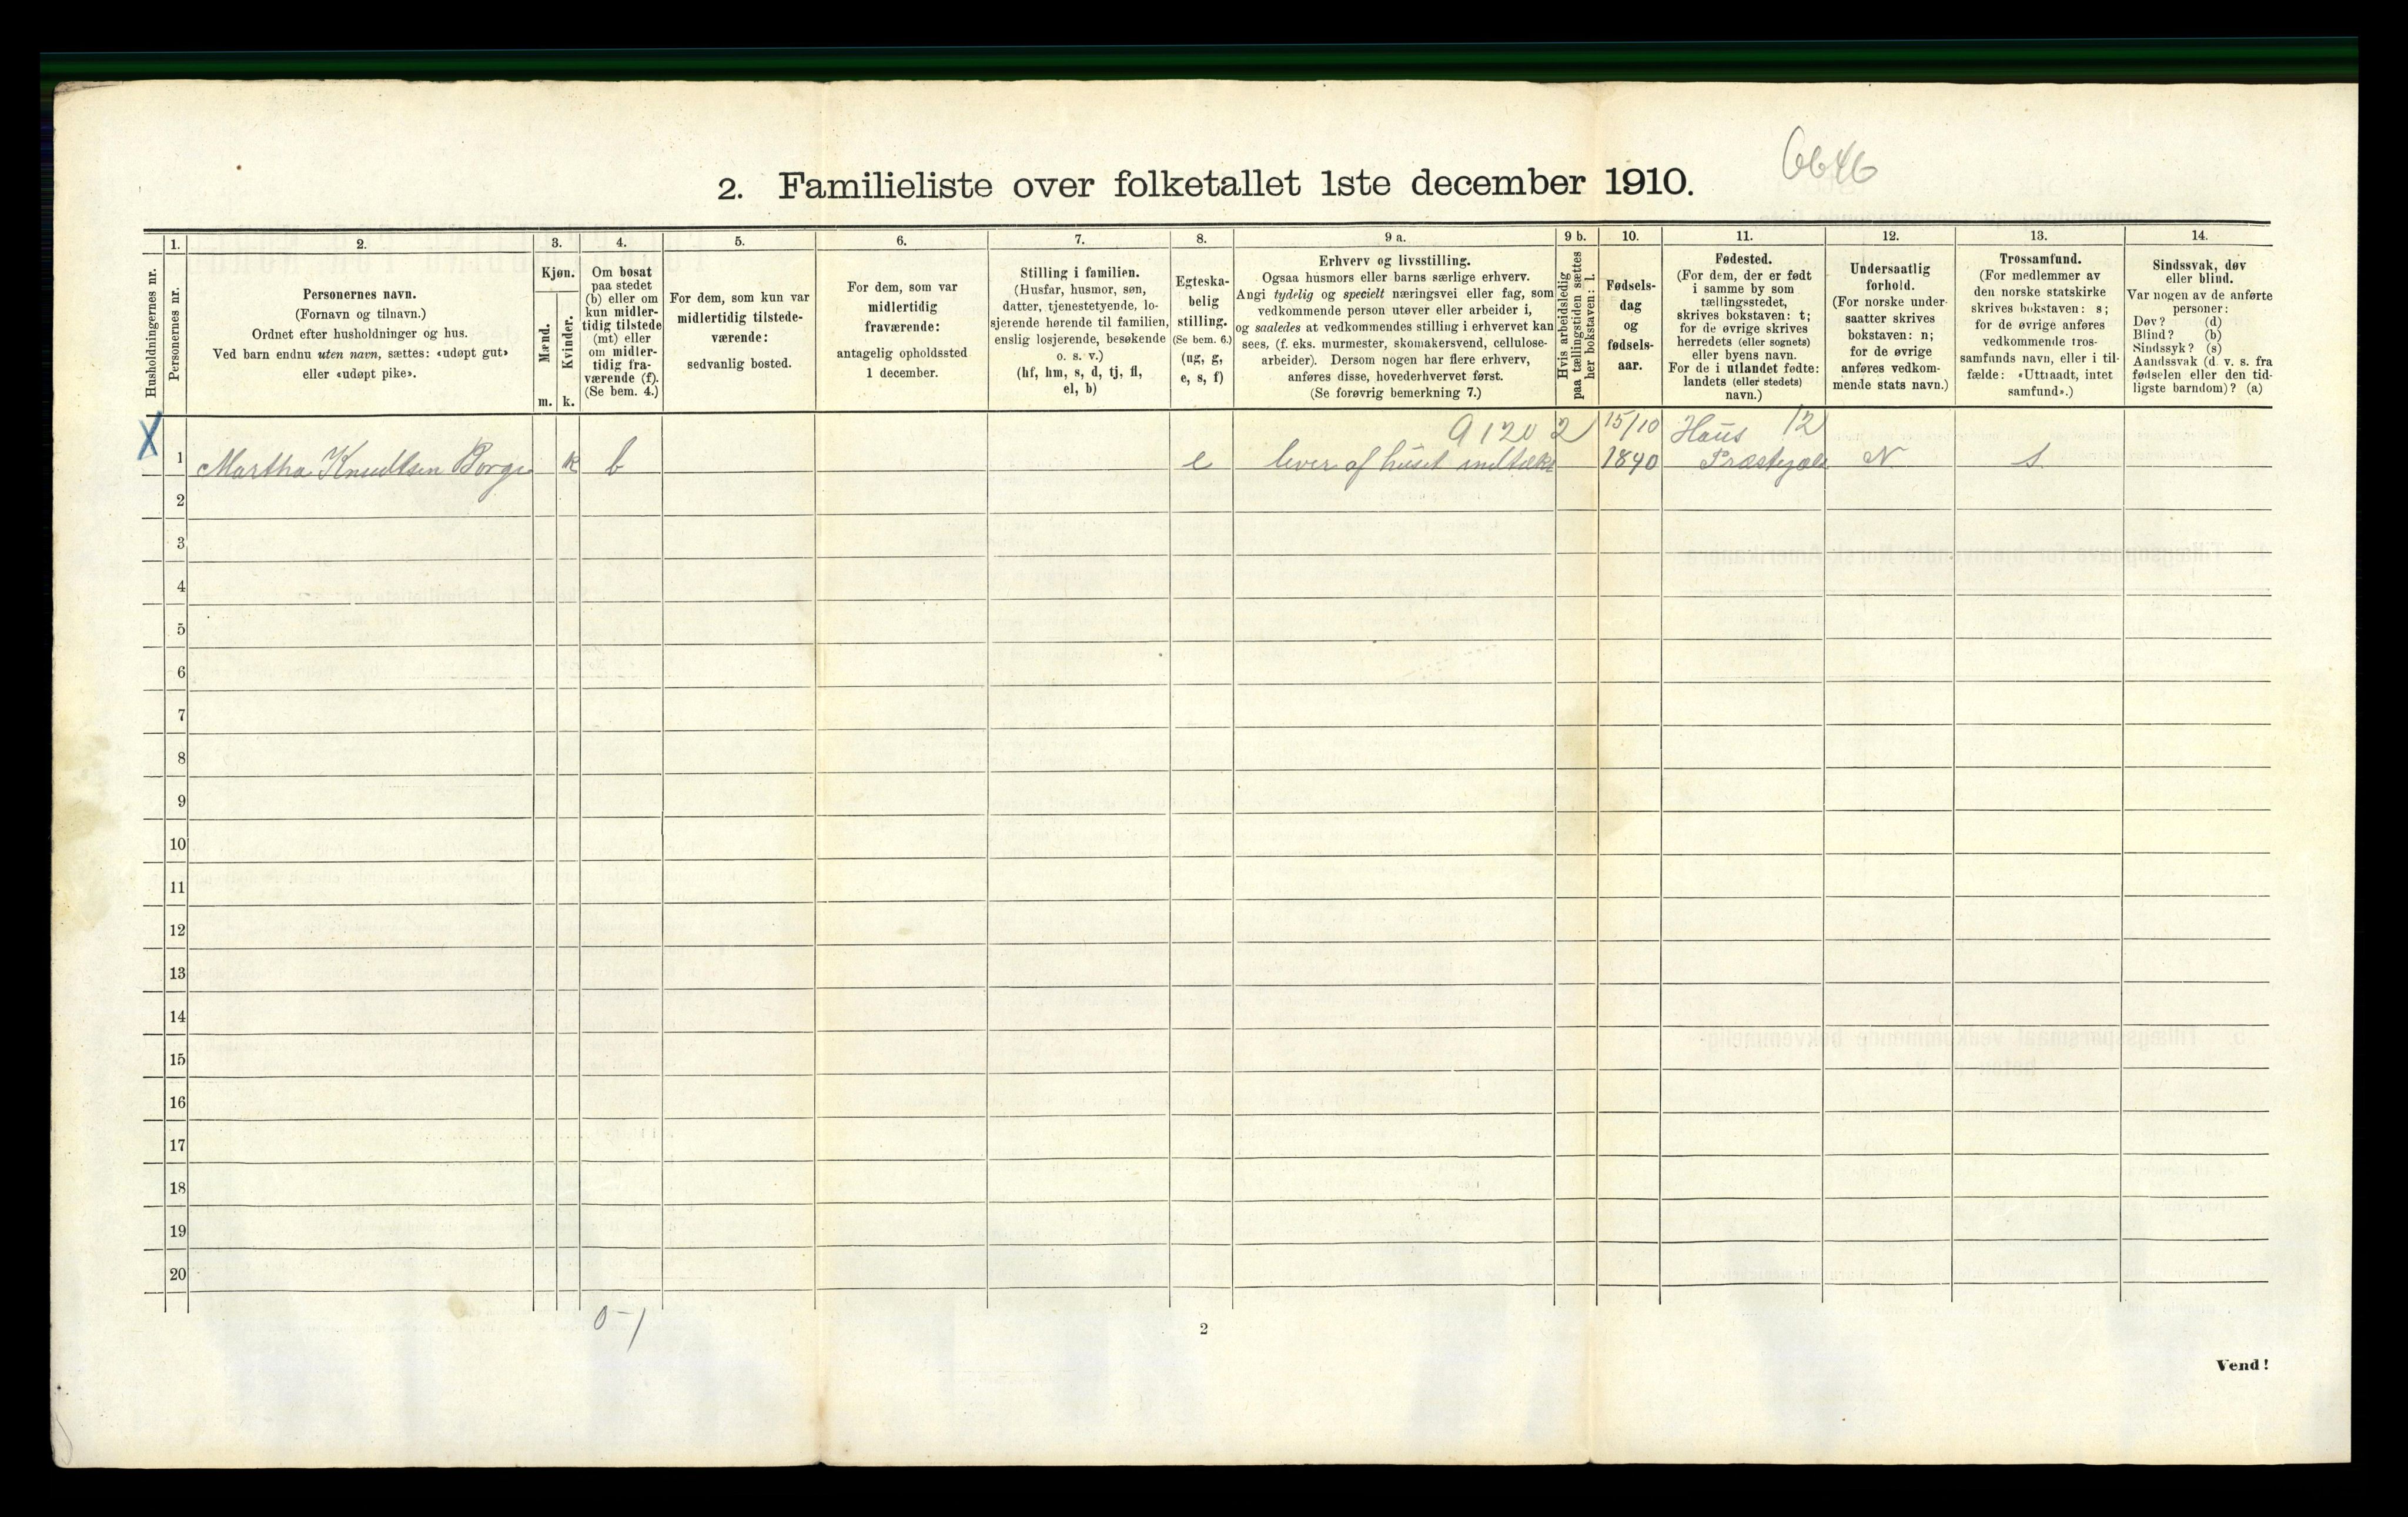 6646
2. Familieliste over folketallet 1ste december 1910.
Husholdningernes nr.
1.
Personernes nr.
2.
Personernes navn.
(Fornavn og tilnavn.)
Ordnet efter husholdninger og hus.
Ved barn endnu uten navn, sættes: «udøpt gut»
eller «udøpt pike».
3.
Kjøn.
Mænd.
m.
Kvinder.
k.
4.
Om bosat
paa stedet
(b) eller om
kun midler-
tidig tilstede
(mt) eller
om midler-
tidig fra-
værende (f).
(Se bem. 4.)
5.
For dem, som kun var
midlertidig tilstede-
værende:
sedvanlig bosted.
6.
For dem, som var
midlertidig
fraværende:
antagelig opholdssted
1 december.
7.
Stilling i familien.
(Husfar, husmor, søn,
datter, tjenestetyende, lo-
sjerende hørende til familien,
enslig losjerende, besøkende
o. s. v.)
(hf, hm, s, d, tj, fl,
el, b)
8.
Egteska-
belig
stilling.
(Se bem. 6.)
(ug, g,
e, s, f)
9 a.
Erhverv og livsstilling.
Ogsaa husmors eller barns særlige erhverv.
Angi tydelig og specielt næringsvei eller fag, som
vedkommende person utøver eller arbeider i,
og saaledes at vedkommendes stilling i erhvervet kan
sees, (f. eks. murmester, skomakersvend, cellulose-
arbeider). Dersom nogen har flere erhverv,
anføres disse, hovederhvervet først.
(Se forøvrig bemerkning 7.)
9 b.
Hvis arbeidsledig
paa tællingstiden sættes
her bokstaven: l.
10.
Fødsels-
dag
og
fødsels-
aar.
11.
Fødested.
(For dem, der er født
i samme by som
tællingsstedet,
skrives bokstaven: t;
for de øvrige skrives
herredets (eller sognets)
eller byens navn.
For de i utlandet fødte:
landets (eller stedets)
navn.)
12.
Undersaatlig
forhold.
(For norske under-
saatter skrives
bokstaven: n;
for de øvrige
anføres vedkom-
mende stats navn.)
13.
Trossamfund.
(For medlemmer av
den norske statskirke
skrives bokstaven: s;
for de øvrige anføres
vedkommende tros-
samfunds navn, eller i til-
fælde: «Uttraadt, intet
samfund».)
14.
Sindssvak, døv
eller blind.
Var nogen av de anførte
personer:
Døv? (d)
Blind? (b)
Sindssyk? (s)
Aandssvak (d. v. s. fra
fødselen eller den tid-
ligste barndom)? (a)
X 9120 2 15/10 Haus 12
1 Martha Knudtsen Borge k b e lever af huset indtækt 1840 Præstegæld N s
2
3
4
5
6
7
8
9
10
11
12
13
14
15
16
17
18
19
20
0-1
2
Vend!